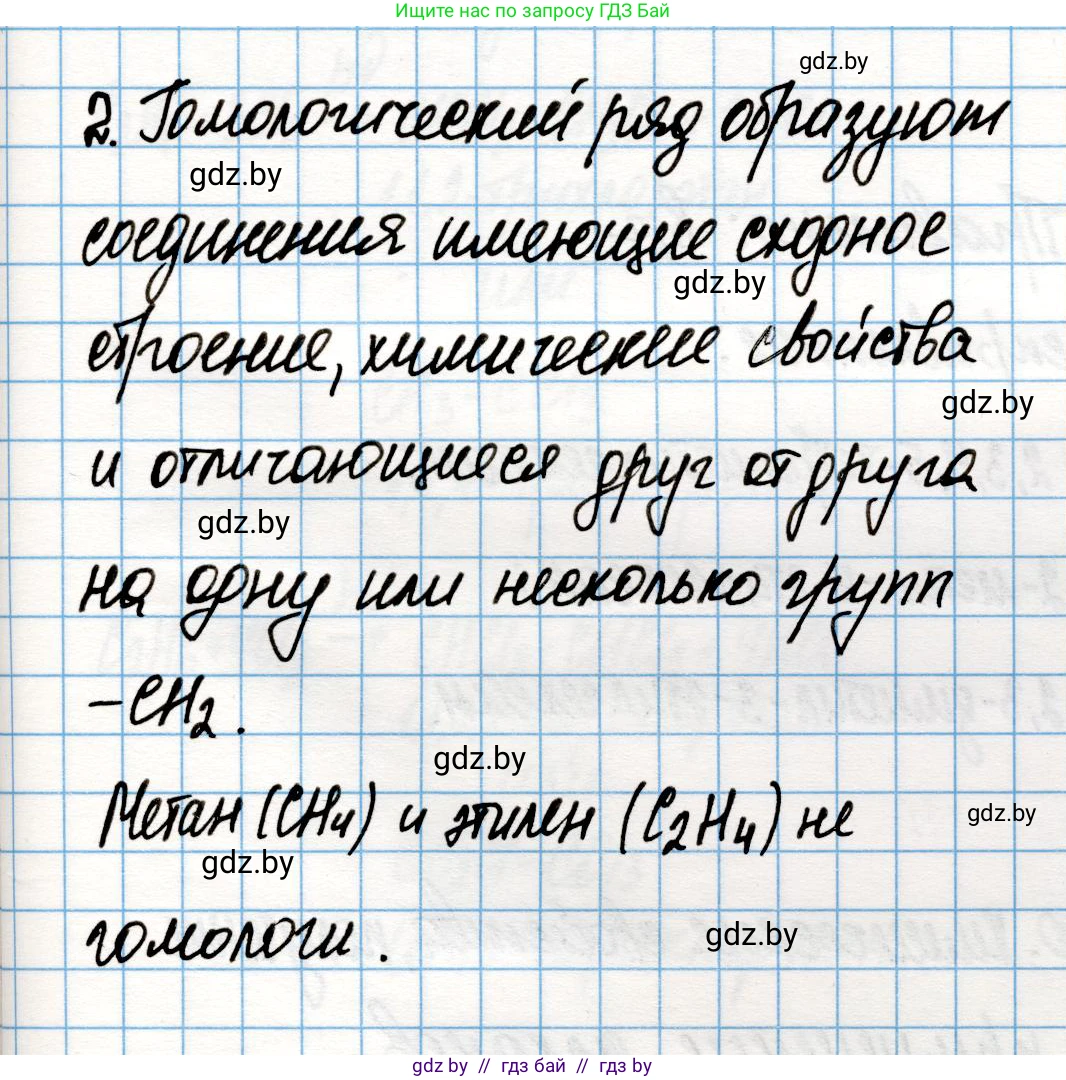 Ищите нас по запросу ГДЗ Бай
gdz.by
2. Гомологический ряд образуют
gdz.by
соединения имеющие сходное
gdz.by
строение, химические свойства
gdz.by
и отличающиеся друг от друга
gdz.by
на одну или несколько групп
–CH₂.
gdz.by
Метан (CH₄) и этилен (C₂H₄) не
gdz.by
gdz.by
гомологи.
gdz.by
gdz.by // гдз бай // гдз by